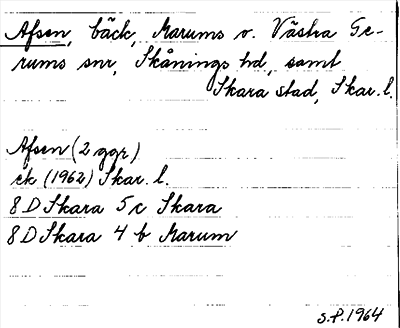 Afsen, bäck, Marums o. Västra Ge-
rums snr, Skånings hd, samt
Skara stad, Skar. l.
Afsen (2 ggr)
ek (1962) Skar. l.
8 D Skara 5 c Skara
8 D Skara 4 b Marum
S.P. 1964